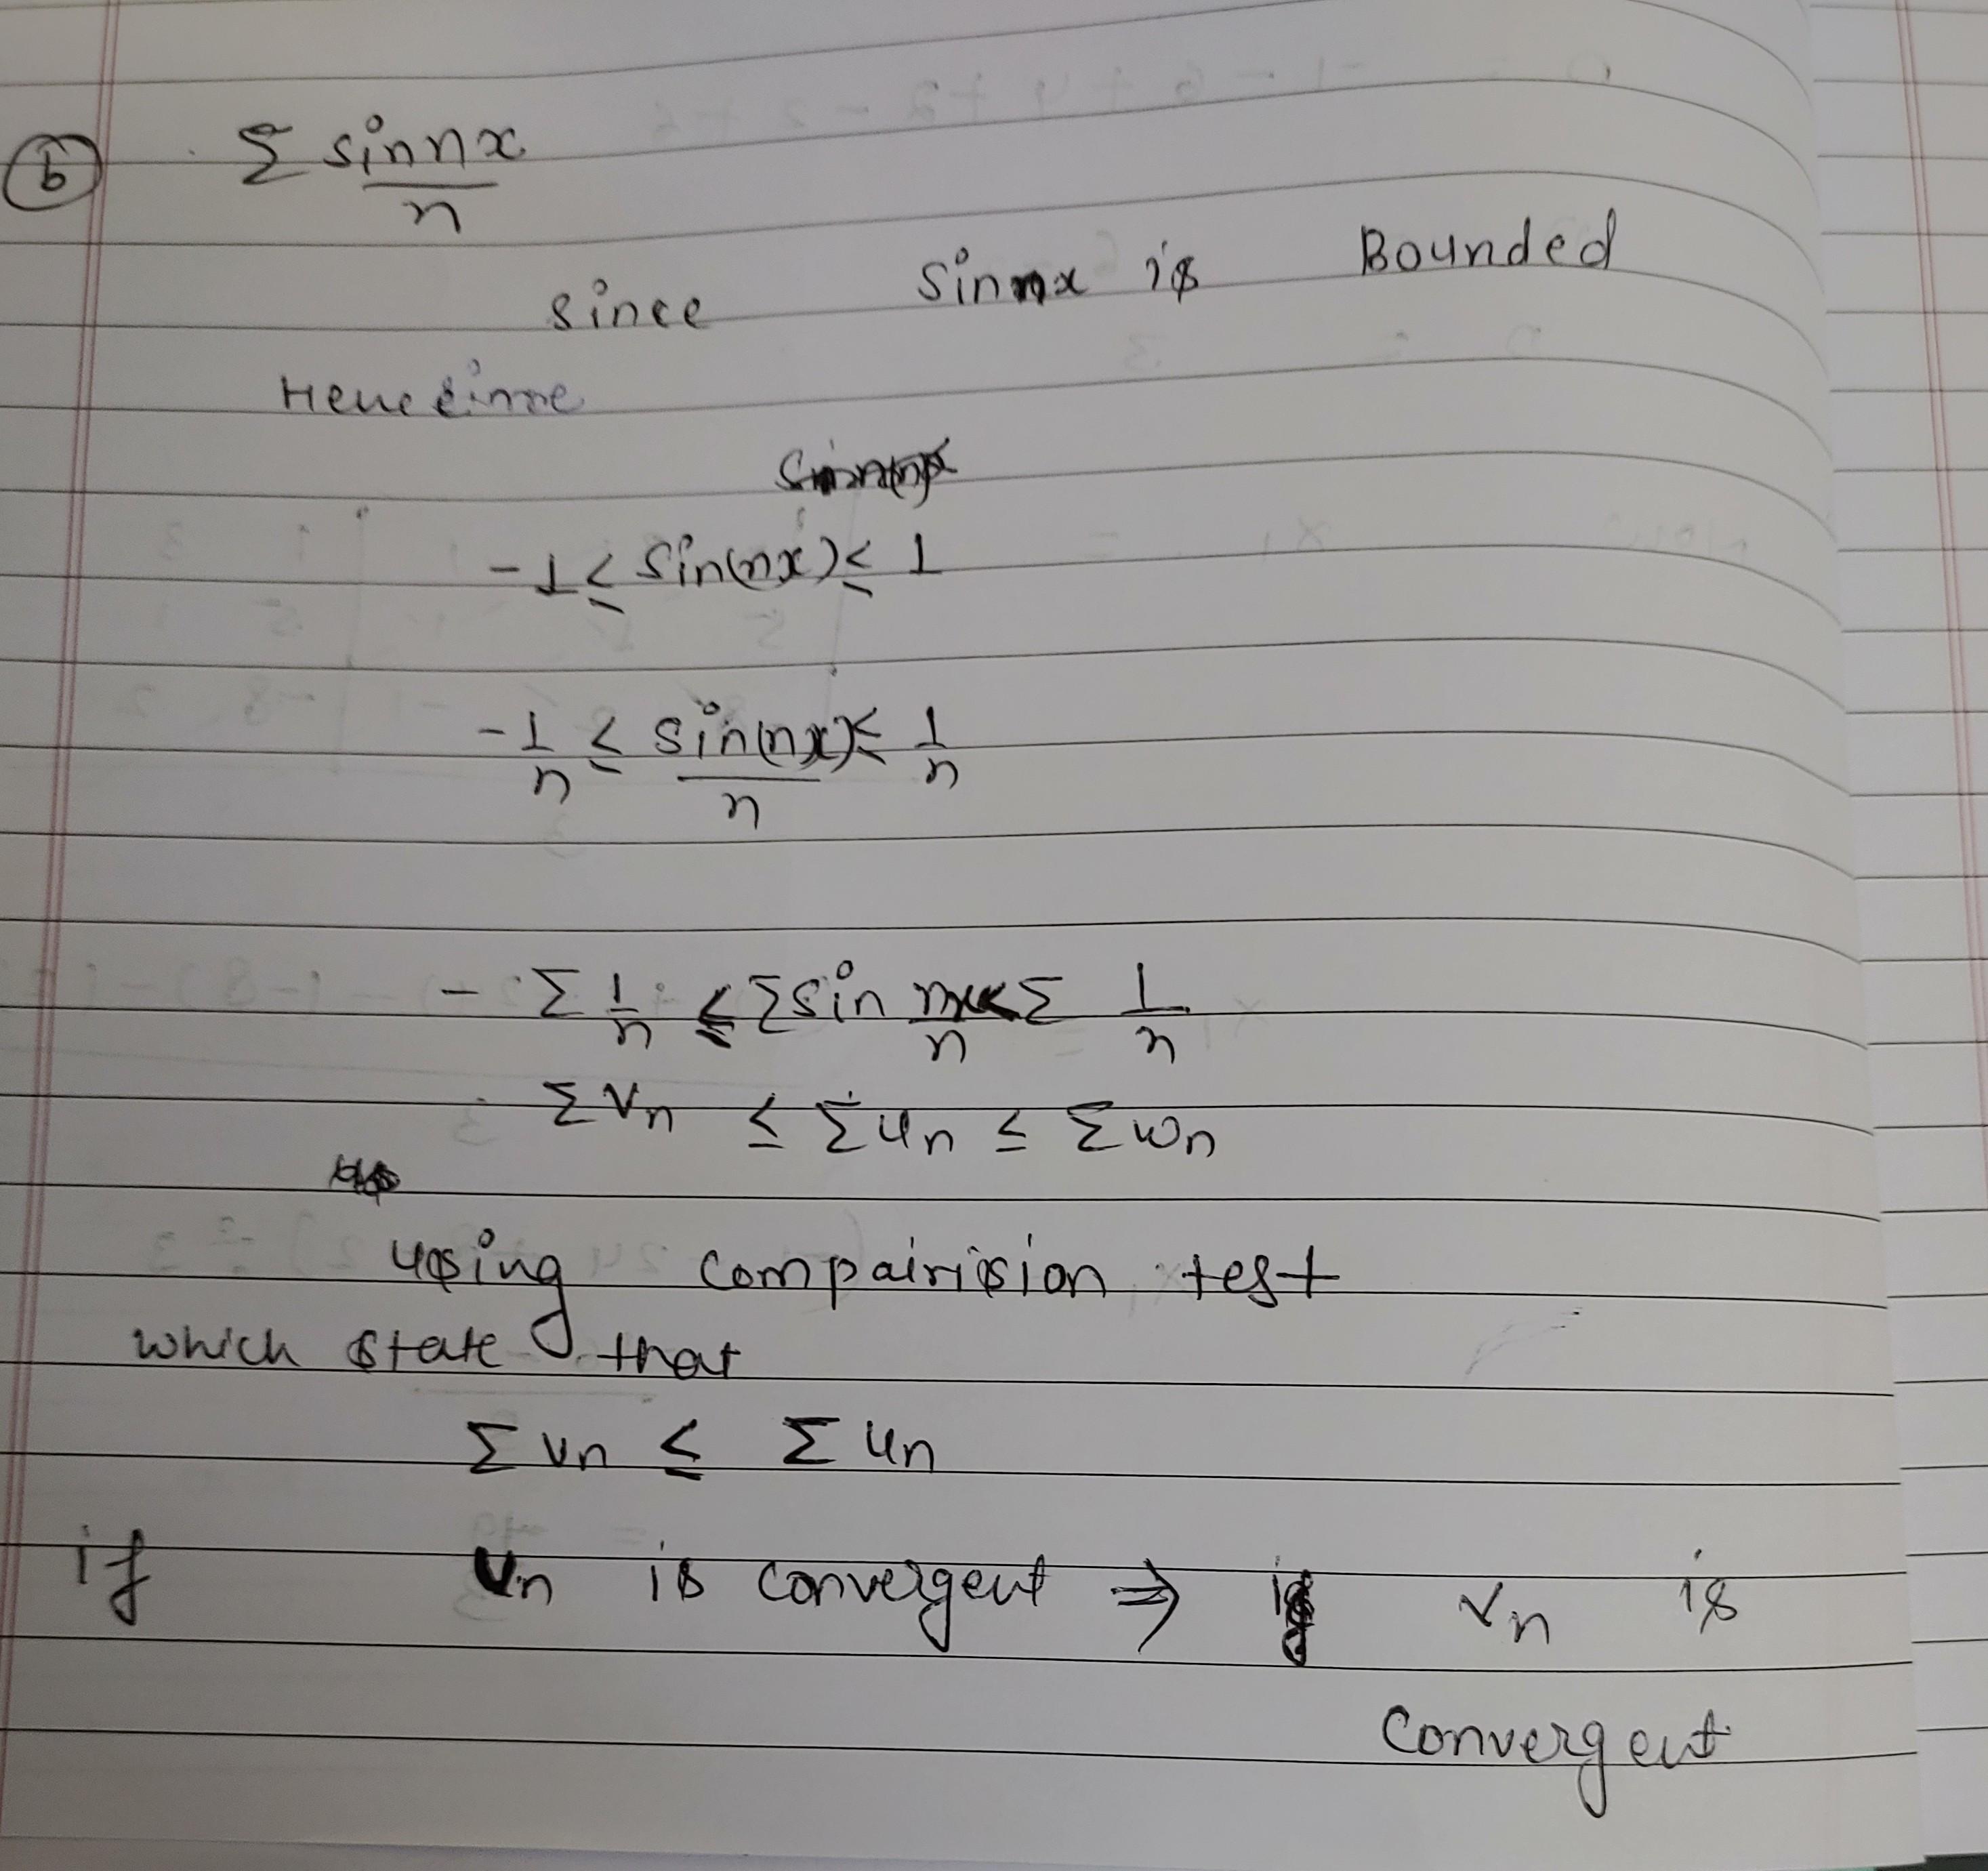 (b) Σ sin nx / n
since sin nx is Bounded
Hence
-1 ≤ sin(nx) ≤ 1
-1/n ≤ sin(nx)/n ≤ 1/n
- Σ 1/n ≤ Σ sin nx/n < Σ 1/n
Σ Vn ≤ Σ un ≤ Σ wn
using compairision test
which state that
Σ vn ≤ Σ un
if Un is convergent ⇒ Vn is
convergent